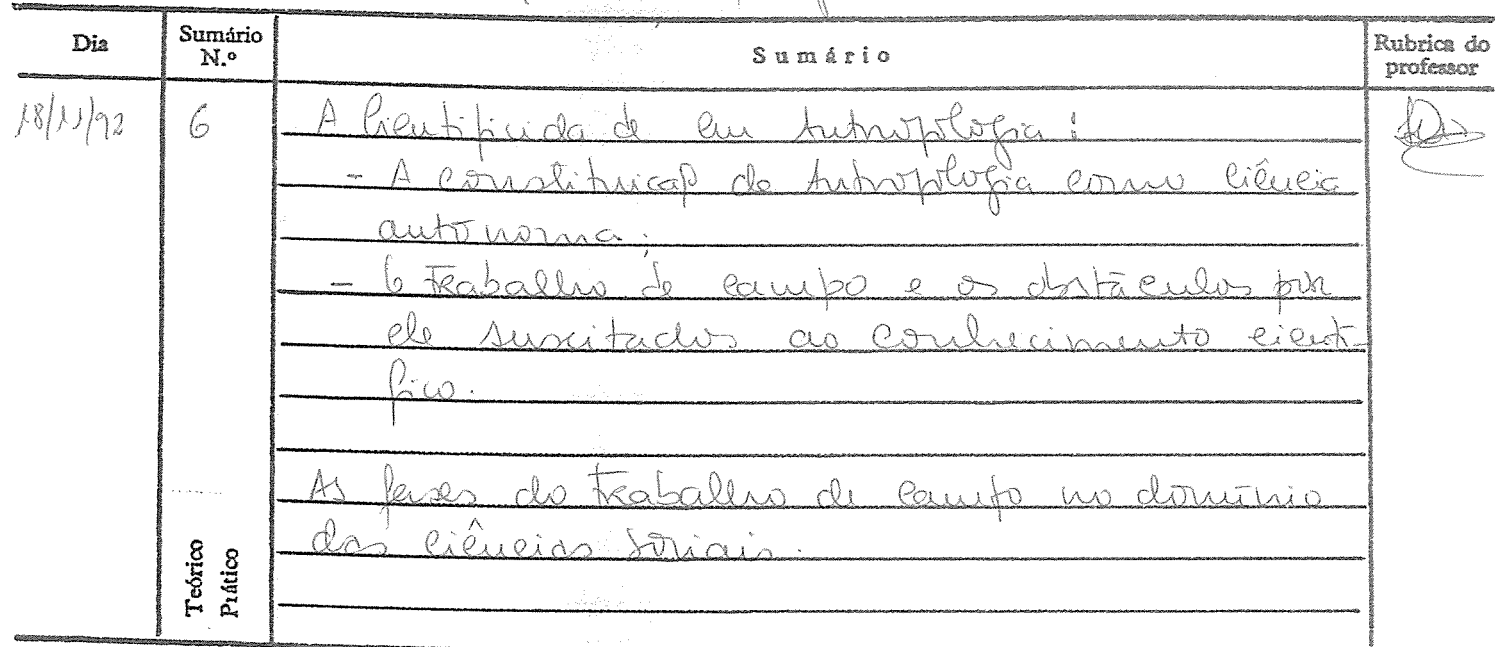 Dia
Sumário N.º
Sumário
Rubrica do professor
18/11/92
6
A Cientificidade em Antropologia:
- A constituição da Antropologia como ciência
autónoma;
- O Trabalho de campo e os obstáculos por
ele suscitados ao conhecimento cientí-
fico.
As fases do Trabalho de campo no domínio
das ciências sociais.
Teórico
Prático